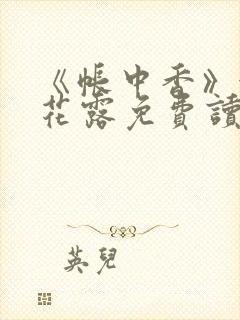 《帳中香》
花露免費讀
英兒